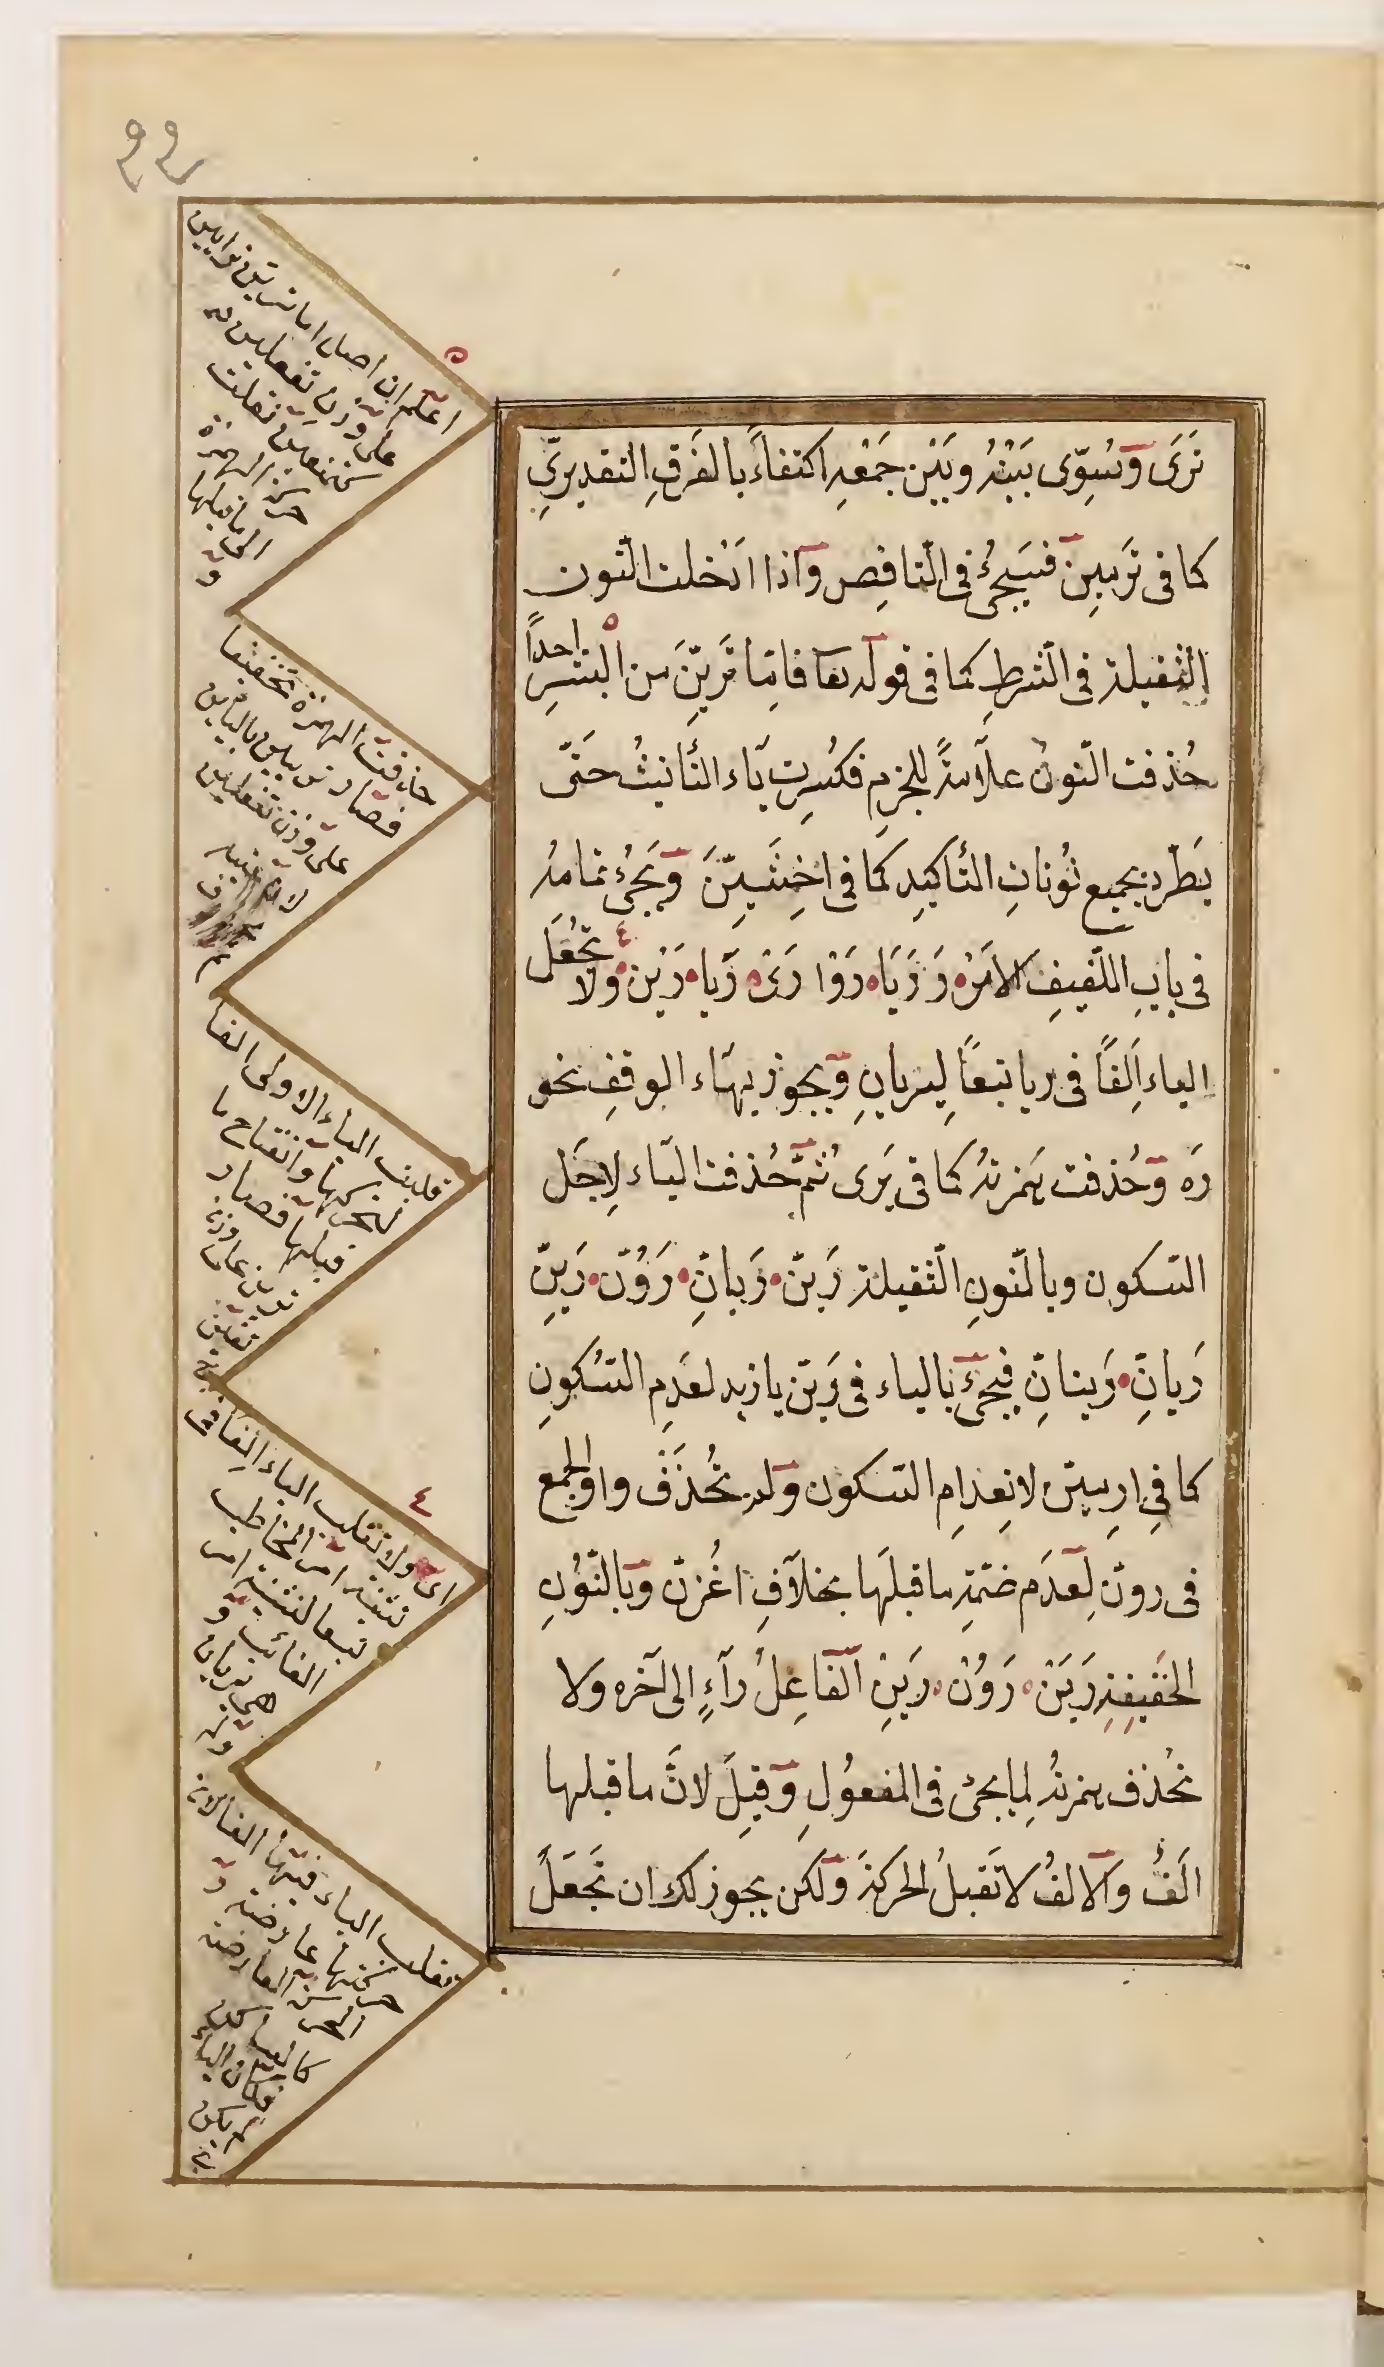 تَرَىَ وَيُسَوّى بَيْنهُ وبَيْن جَمْعِهِ اكتفاءً بالفَرَقِ التقديرِيِّ
كما فى تَرميِنَ فسَيَجىُٔ فى النّاقِصِ وَاذا ادْخلت النّون
الثّقيلة فى الشّرطِ كما فى قوله تعا فامّا تَرَيِنَّ من البشرِ احداً
حُذفت النّونُ علاَمةً للجزمِ فكسُرِت يَاء التأنيثُ حَتّى
يَطّرد بجميعِ نُوناتِ التأكيدِ كمَا فى اخِشَيِنَّ وَيَجىُٔ تمامهُ
فى بابِ اللّفيفِ الامرْ رَ رَيَا رَوْا رَىْ رَيا رَيْن ولا تجُعَل
الياء اَلِفاً فى ريا تبعاً لِيَريانِ وَيجوز بهَاء الوقفِ نحو
رَه وَحُذفت هَمزتهُ كما فى يَرى ثُمَّ حُذفت اليَاء لِاجَل
السّكون وبالنّونِ الثّقيلة رَيَنّ رَيانِّ رَوُنّ رَيِنّ
رَيانِّ رَينانِّ فيجىَٔ بالياء فى رَيَنّ يا زيد لعَدِم السّكونِ
كما فِى ارمِيَنّ لانعِدامِ السّكون وَلم تحُذَفْ واو الجمع
فى رونّ لِعَدَم ضمّةِ ما قبلَها بخلاَفِ اغُزنّ وَبالنّوْنِ
الخَفيِفةِ رَيَنْ رَوُنْ رَيِنْ الَفَاعِلُ رآءٍ الى آخره ولا
تحُذف همزتهُ لِما يجىٔ فى المفعوُلِ وَقيِلَ لانَّ ما قبلها
الَفُ وَالالفُ لا تَقبلُ الحركةَ وَلكن يجوز لك ان تَجعَلَ
اعلم ان اصل اما ترين ترايين
على وزن تفعلين
من تفعلين نقلت
حركة الهمزة
الى ما قبلها
و
حذفت الهمزة تخفيفا
فصار تريين باليائين
على وزن تفلين
قلبت الياء الاولى الفا
لتحركها وانفتاح ما
قبلها فصار
ترين على وزن
تفين
اى ولا تقلب الياء الفا فى
تثنية امر المخاطب
تبعا لتثنية امر
الغائب و
هى تريان
تقلب الياء فيها الفا لان
حركتها عارضة و
الحركة العارضة
كالساكن
فكان الياء
لم يكن